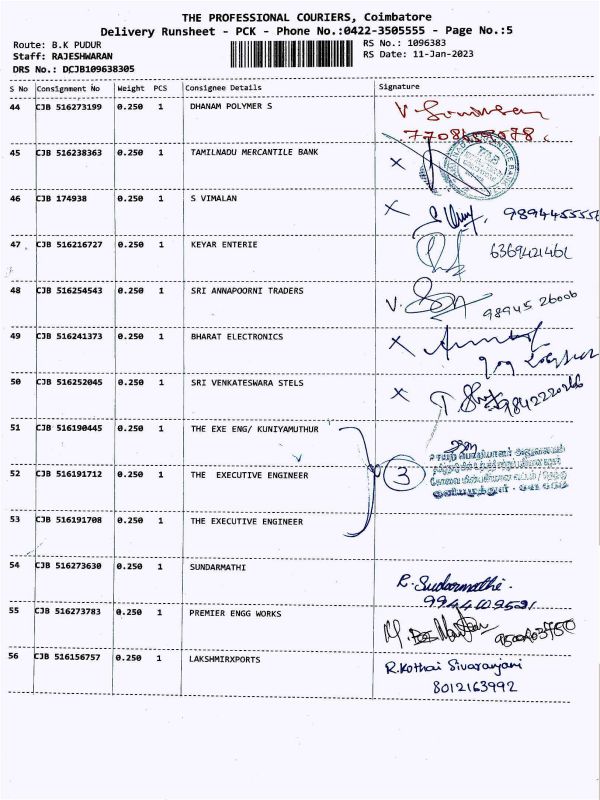 THE PROFESSIONAL COURIERS, Coimbatore
Delivery Runsheet - PCK - Phone No.:0422-3505555 - Page No.:5
Route: B.K PUDUR
Staff: RAJESHWARAN
DRS No.: DCJB109638305
RS No.: 1096383
RS Date: 11-Jan-2023
S No Consignment No Weight PCS Consignee Details Signature
44 CJB 516273199 0.250 1 DHANAM POLYMER S
45 CJB 516238363 0.250 1 TAMILNADU MERCANTILE BANK X
46 CJB 174938 0.250 1 S VIMALAN X
47 CJB 516216727 0.250 1 KEYAR ENTERIE
48 CJB 516254543 0.250 1 SRI ANNAPOORNI TRADERS 98945 26006
49 CJB 516241373 0.250 1 BHARAT ELECTRONICS X
50 CJB 516252045 0.250 1 SRI VENKATESWARA STELS X
51 CJB 516190445 0.250 1 THE EXE ENG/ KUNIYAMUTHUR
52 CJB 516191712 0.250 1 THE EXECUTIVE ENGINEER 3
53 CJB 516191708 0.250 1 THE EXECUTIVE ENGINEER
54 CJB 516273630 0.250 1 SUNDARMATHI R. Sudarmathi
55 CJB 516273783 0.250 1 PREMIER ENGG WORKS
56 CJB 516156757 0.250 1 LAKSHMIRXPORTS R. Kothai Sivaranjani
8012163992